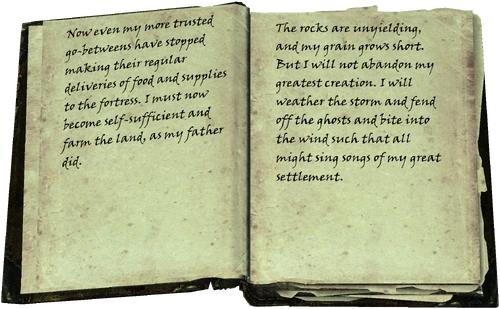 Now even my more trusted
go-betweens have stopped
making their regular
deliveries of food and supplies
to the fortress. I must now
become self-sufficient and
farm the land, as my father
did.
The rocks are unyielding,
and my grain grows short.
But I will not abandon my
greatest creation. I will
weather the storm and fend
off the ghosts and bite into
the wind such that all
might sing songs of my great
settlement.